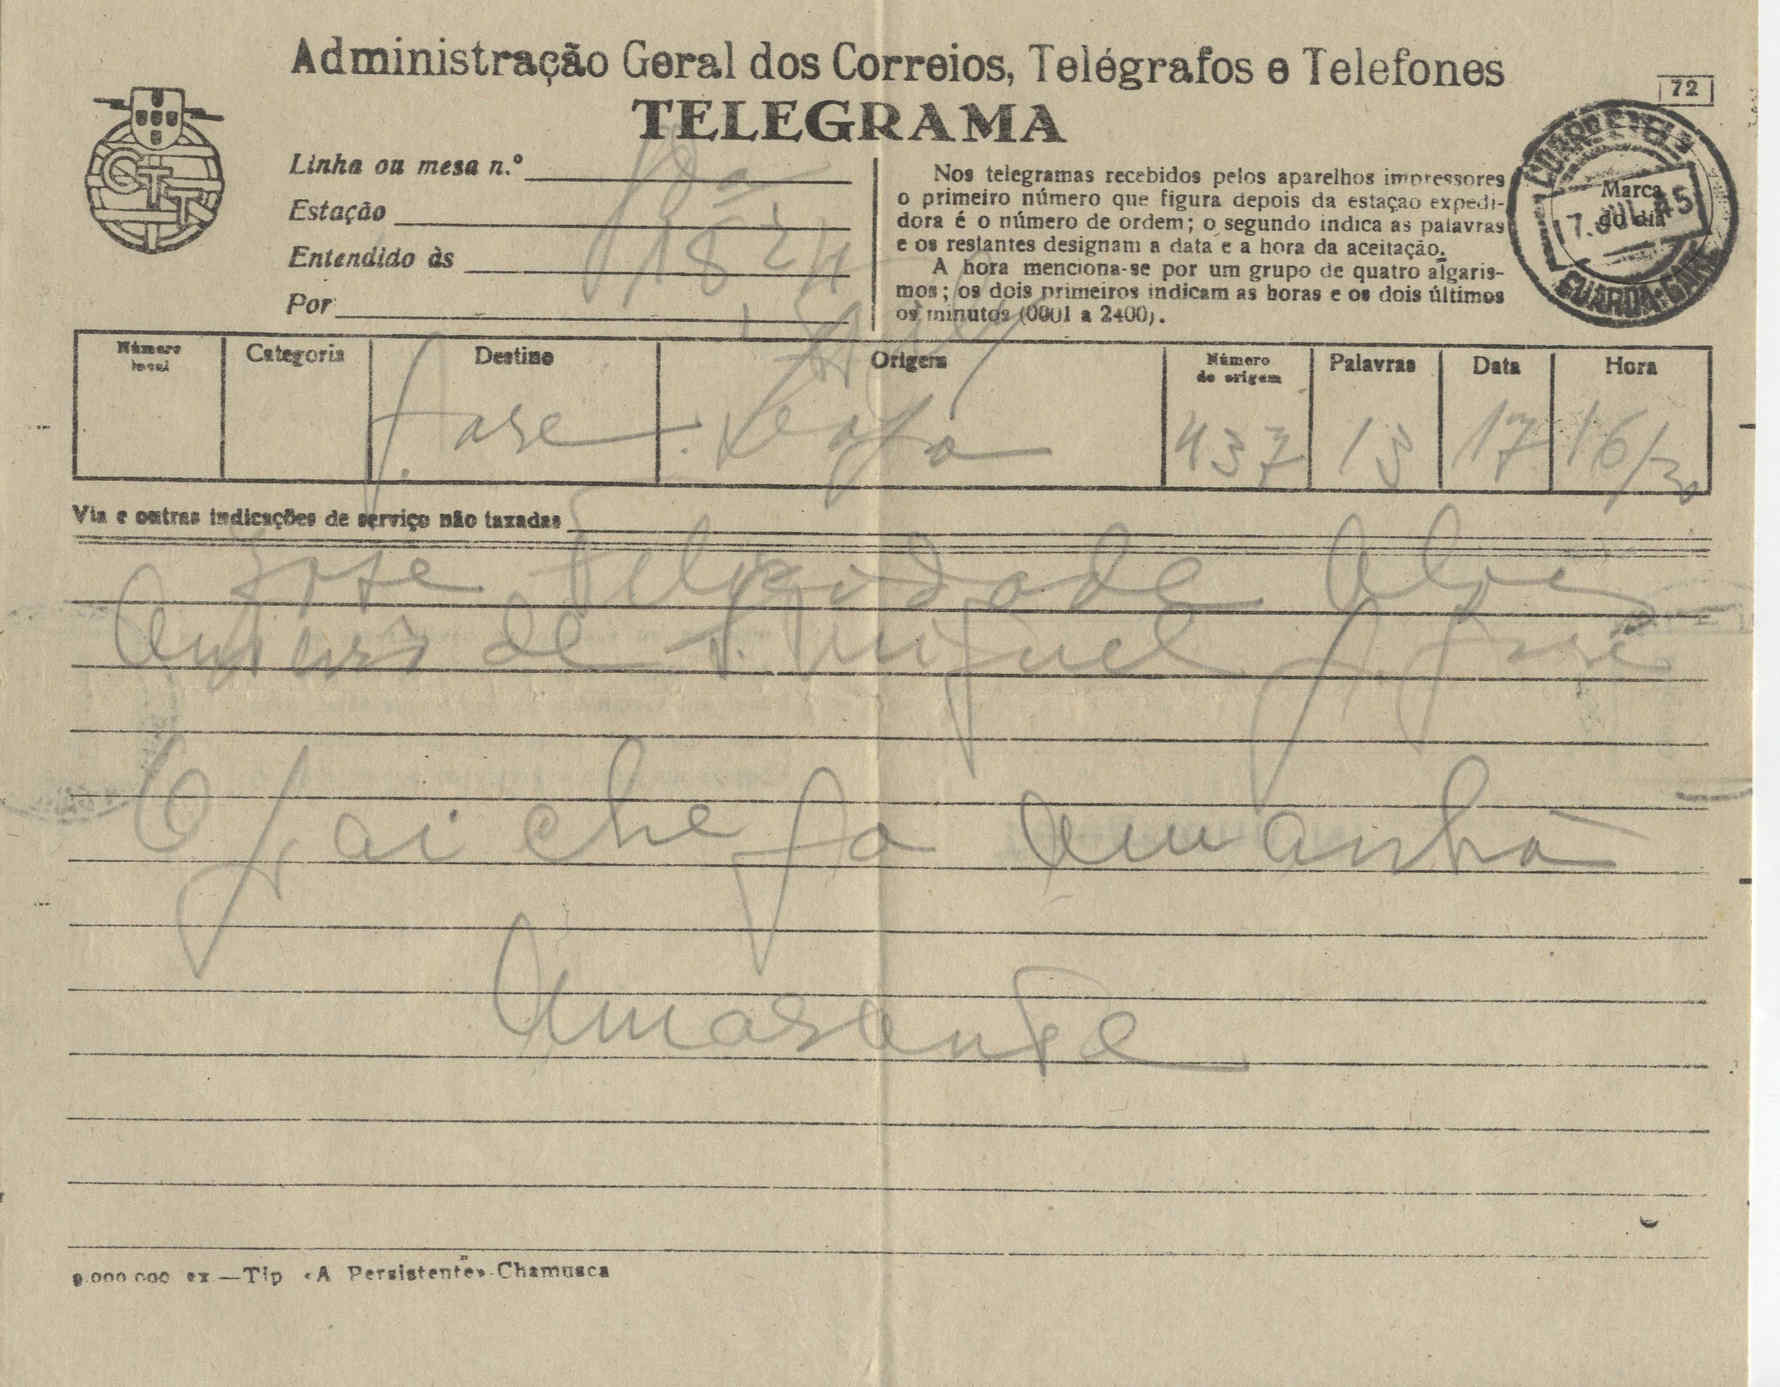 Administração Geral dos Correios, Telégrafos e Telefones
72
TELEGRAMA
CTT
Linha ou mesa n.º
Estação
Entendido às
Por
Nos telegramas recebidos pelos aparelhos impressores
o primeiro número que figura depois da estação expedi-
dora é o número de ordem; o segundo indica as palavras
e os restantes designam a data e a hora da aceitação.
A hora menciona-se por um grupo de quatro algaris-
mos; os dois primeiros indicam as horas e os dois últimos
os minutos (0001 a 2400).
Marca
do dia
17.JUL.45
GUARDA-GARE
Número
local
Categoria
Destino
Origem
Número
de origem
Palavras
Data
Hora
437 13 17 16/30
Via e outras indicações de serviço não taxadas
Jose Felicidade Alves
de S. Miguel
O pai chega amanhã
Amarante
9.000.000 ex.—Tip «A Persistente»-Chamusca